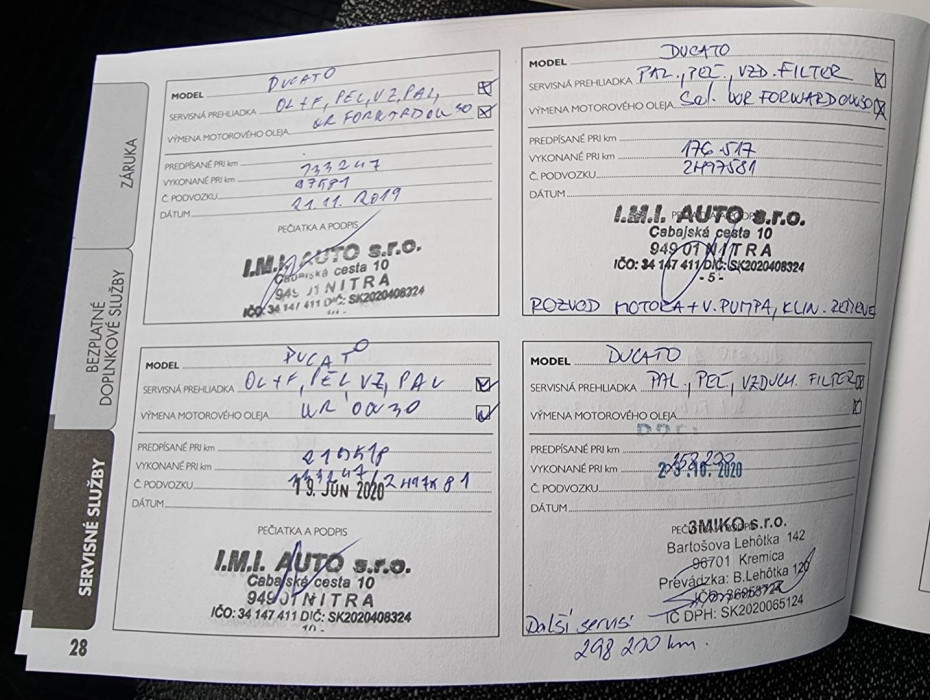 ZÁRUKA
BEZPLATNÉ
DOPLNKOVÉ SLUŽBY
SERVISNÉ SLUŽBY
28
MODEL DUCATO
SERVISNÁ PREHLIADKA OL+F, PEL, VZ, PAL,
VÝMENA MOTOROVÉHO OLEJA WR FORWARD 0W30
PREDPÍSANÉ PRI km
VYKONANÉ PRI km 133247
Č. PODVOZKU 97581
DÁTUM 21.11.2019
PEČIATKA A PODPIS
I.M.I. AUTO s.r.o.
Cabajská cesta 10
949 01 NITRA
IČO: 34 147 411 DIČ: SK2020408324
MODEL DUCATO
SERVISNÁ PREHLIADKA PAL., PEĽ, VZD. FILTER
VÝMENA MOTOROVÉHO OLEJA Sel. WR FORWARD 0W30
PREDPÍSANÉ PRI km
VYKONANÉ PRI km 176 517
Č. PODVOZKU 2H97581
DÁTUM
I.M.I. AUTO s.r.o.
Cabajská cesta 10
949 01 NITRA
IČO: 34 147 411 DIČ: SK2020408324
- 5 -
ROZVOD MOTORA + V. PUMPA, KLIN. REMENE
MODEL DUCATO
SERVISNÁ PREHLIADKA OL+F, PEL, VZ, PAL
VÝMENA MOTOROVÉHO OLEJA WR 0W30
PREDPÍSANÉ PRI km
VYKONANÉ PRI km
Č. PODVOZKU
DÁTUM 19. JÚN 2020
PEČIATKA A PODPIS
I.M.I. AUTO s.r.o.
Cabajská cesta 10
949 01 NITRA
IČO: 34 147 411 DIČ: SK2020408324
- 10 -
MODEL DUCATO
SERVISNÁ PREHLIADKA PAL., PEĽ, VZDUCH. FILTER
VÝMENA MOTOROVÉHO OLEJA
PREDPÍSANÉ PRI km
VYKONANÉ PRI km
23. 10. 2020
Č. PODVOZKU
DÁTUM
3MIKO s.r.o.
Bartošova Lehôtka 142
96701 Kremica
Prevádzka: B.Lehôtka
IČ DPH: SK2020065124
Ďalší servis
298 200 km.